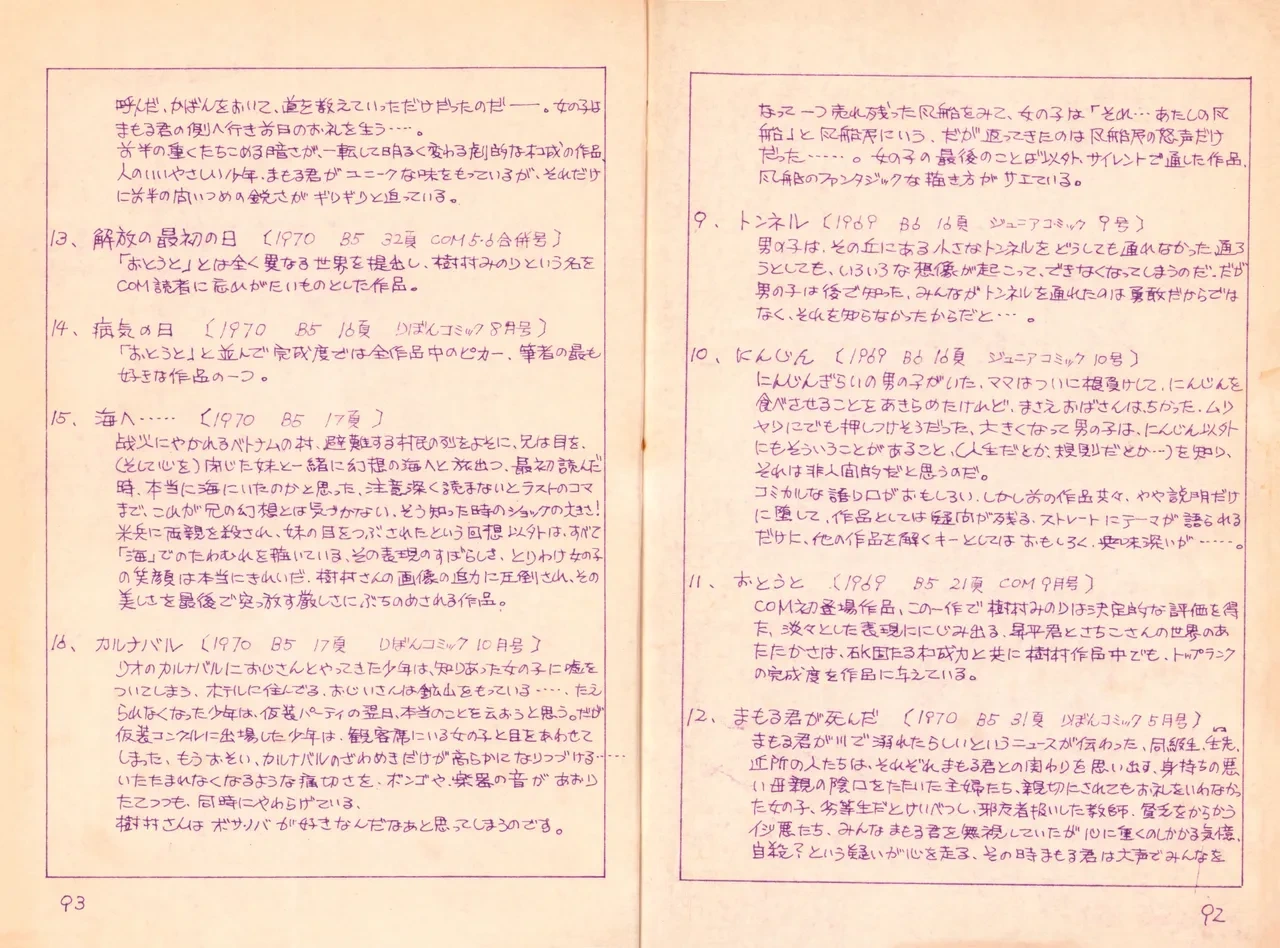 なって一つ売れ残った風船をみて、女の子は「それ…あたしの風
船」と風船屋にいう、だが返ってきたのは風船屋の怒声だけ
だった……。女の子の最後のことば以外、サイレントで通した作品、
風船のファンタジックな描き方がサエている。
9、トンネル (1969 B6 16頁 ジュニアコミック 9号)
男の子は、その丘にある小さなトンネルをどうしても通れなかった、通ろ
うとしても、いろいろな想像が起こって、できなくなってしまうのだ、だが
男の子は後で知った、みんながトンネルを通れたのは勇敢だからでは
なく、それを知らなかったからだと…。
10、にんじん (1969 B6 16頁 ジュニアコミック 10号)
にんじんぎらいの男の子がいた、ママはついに根負けして、にんじんを
食べさせることをあきらめたけれど、まさえおばさんはちがった、ムリ
ヤリにでも押しつけそうだった、大きくなって男の子は、にんじん以外
にもそういうことがあること、(人生だとか、規則だとか…)を知り、
それは非人間的だと思うのだ。
コミカルな語り口がおもしろい、しかし前の作品共々、やや説明だけ
に堕して、作品としては疑問が残る、ストレートにテーマが語られる
だけに、他の作品を解くキーとしてはおもしろく、興味深いが……。
11、おとうと (1969 B5 21頁 COM 9月号)
COM初登場作品、この一作で樹村みのりは決定的な評価を得
た、淡々とした表現ににじみ出る、昇平君とさちこさんの世界のあ
たたかさは、確固たる構成力と共に樹村作品中でも、トップランク
の完成度を作品に与えている。
12、まもる君が死んだ (1970 B5 31頁 りぼんコミック 5月号)
まもる君が川で溺れたらしいというニュースが伝わった、同級生、先生、
近所の人たちは、それぞれまもる君との関わりを思い出す、身持ちの悪
い母親の陰口をたたいた主婦たち、親切にされてもお礼をいわなかっ
た女の子、劣等生だとけいべつし、邪魔者扱いした教師、貧乏をからかう
イジ悪たち、みんなまもる君を無視していたが心に重くのしかかる気憶、
自殺?という疑いが心を走る、その時まもる君は大声でみんなを
92
呼んだ、かばんをおいて、道を教えていっただけだったのだ――。女の子は
まもる君の側へ行き前日のお礼を生う……。
前半の重くたちこめる暗さが、一転して明るく変わる劇的な構成の作品、
人のいいやさしい少年、まもる君がユニークな味をもっているが、それだけ
に前半の問いつめの鋭さがギリギリと迫っている。
13、解放の最初の日 (1970 B5 32頁 COM 5・6合併号)
「おとうと」とは全く異なる世界を提出し、樹村みのりという名を
COM読者に忘れがたいものとした作品。
14、病気の日 (1970 B5 16頁 りぼんコミック 8月号)
「おとうと」と並んで完成度では全作品中のピカ一、筆者の最も
好きな作品の一つ。
15、海へ…… (1970 B5 17頁)
戦火にやかれるベトナムの村、避難する村民の列をよそに、兄は目を、
(そして心を)閉じた妹と一緒に幻想の海へと旅出つ、最初読んだ
時、本当に海にいたのかと思った、注意深く読まないとラストのコマ
まで、これが兄の幻想とは気づかない、そう知った時のショックの大きさ!
米兵に両親を殺され、妹の目をつぶされたという回想以外は、すべて
「海」でのたわむれを描いている、その表現のすばらしさ、とりわけ女の子
の笑顔は本当にきれいだ、樹村さんの画像の迫力に圧倒され、その
美しさを最後で突っ放す厳しさにぶちのめされる作品。
16、カルナバル (1970 B5 17頁 りぼんコミック 10月号)
リオのカルナバルにおじさんとやってきた少年は、知りあった女の子に嘘を
ついてしまう、ホテルに住んでる、おじいさんは鉱山をもっている……、たえ
られなくなった少年は、仮装パーティの翌日、本当のことを云おうと思う。だが
仮装コンクルに出場した少年は、観客席にいる女の子と目をあわせて
しまった、もうおそい、カルナバルのざわめきだけが高らかになりつづける……
いたたまれなくなるような痛切さを、ボンゴや、楽器の音があおり
たてつつも、同時にやわらげている、
樹村さんはボサノバが好きなんだなあと思ってしまうのです。
93